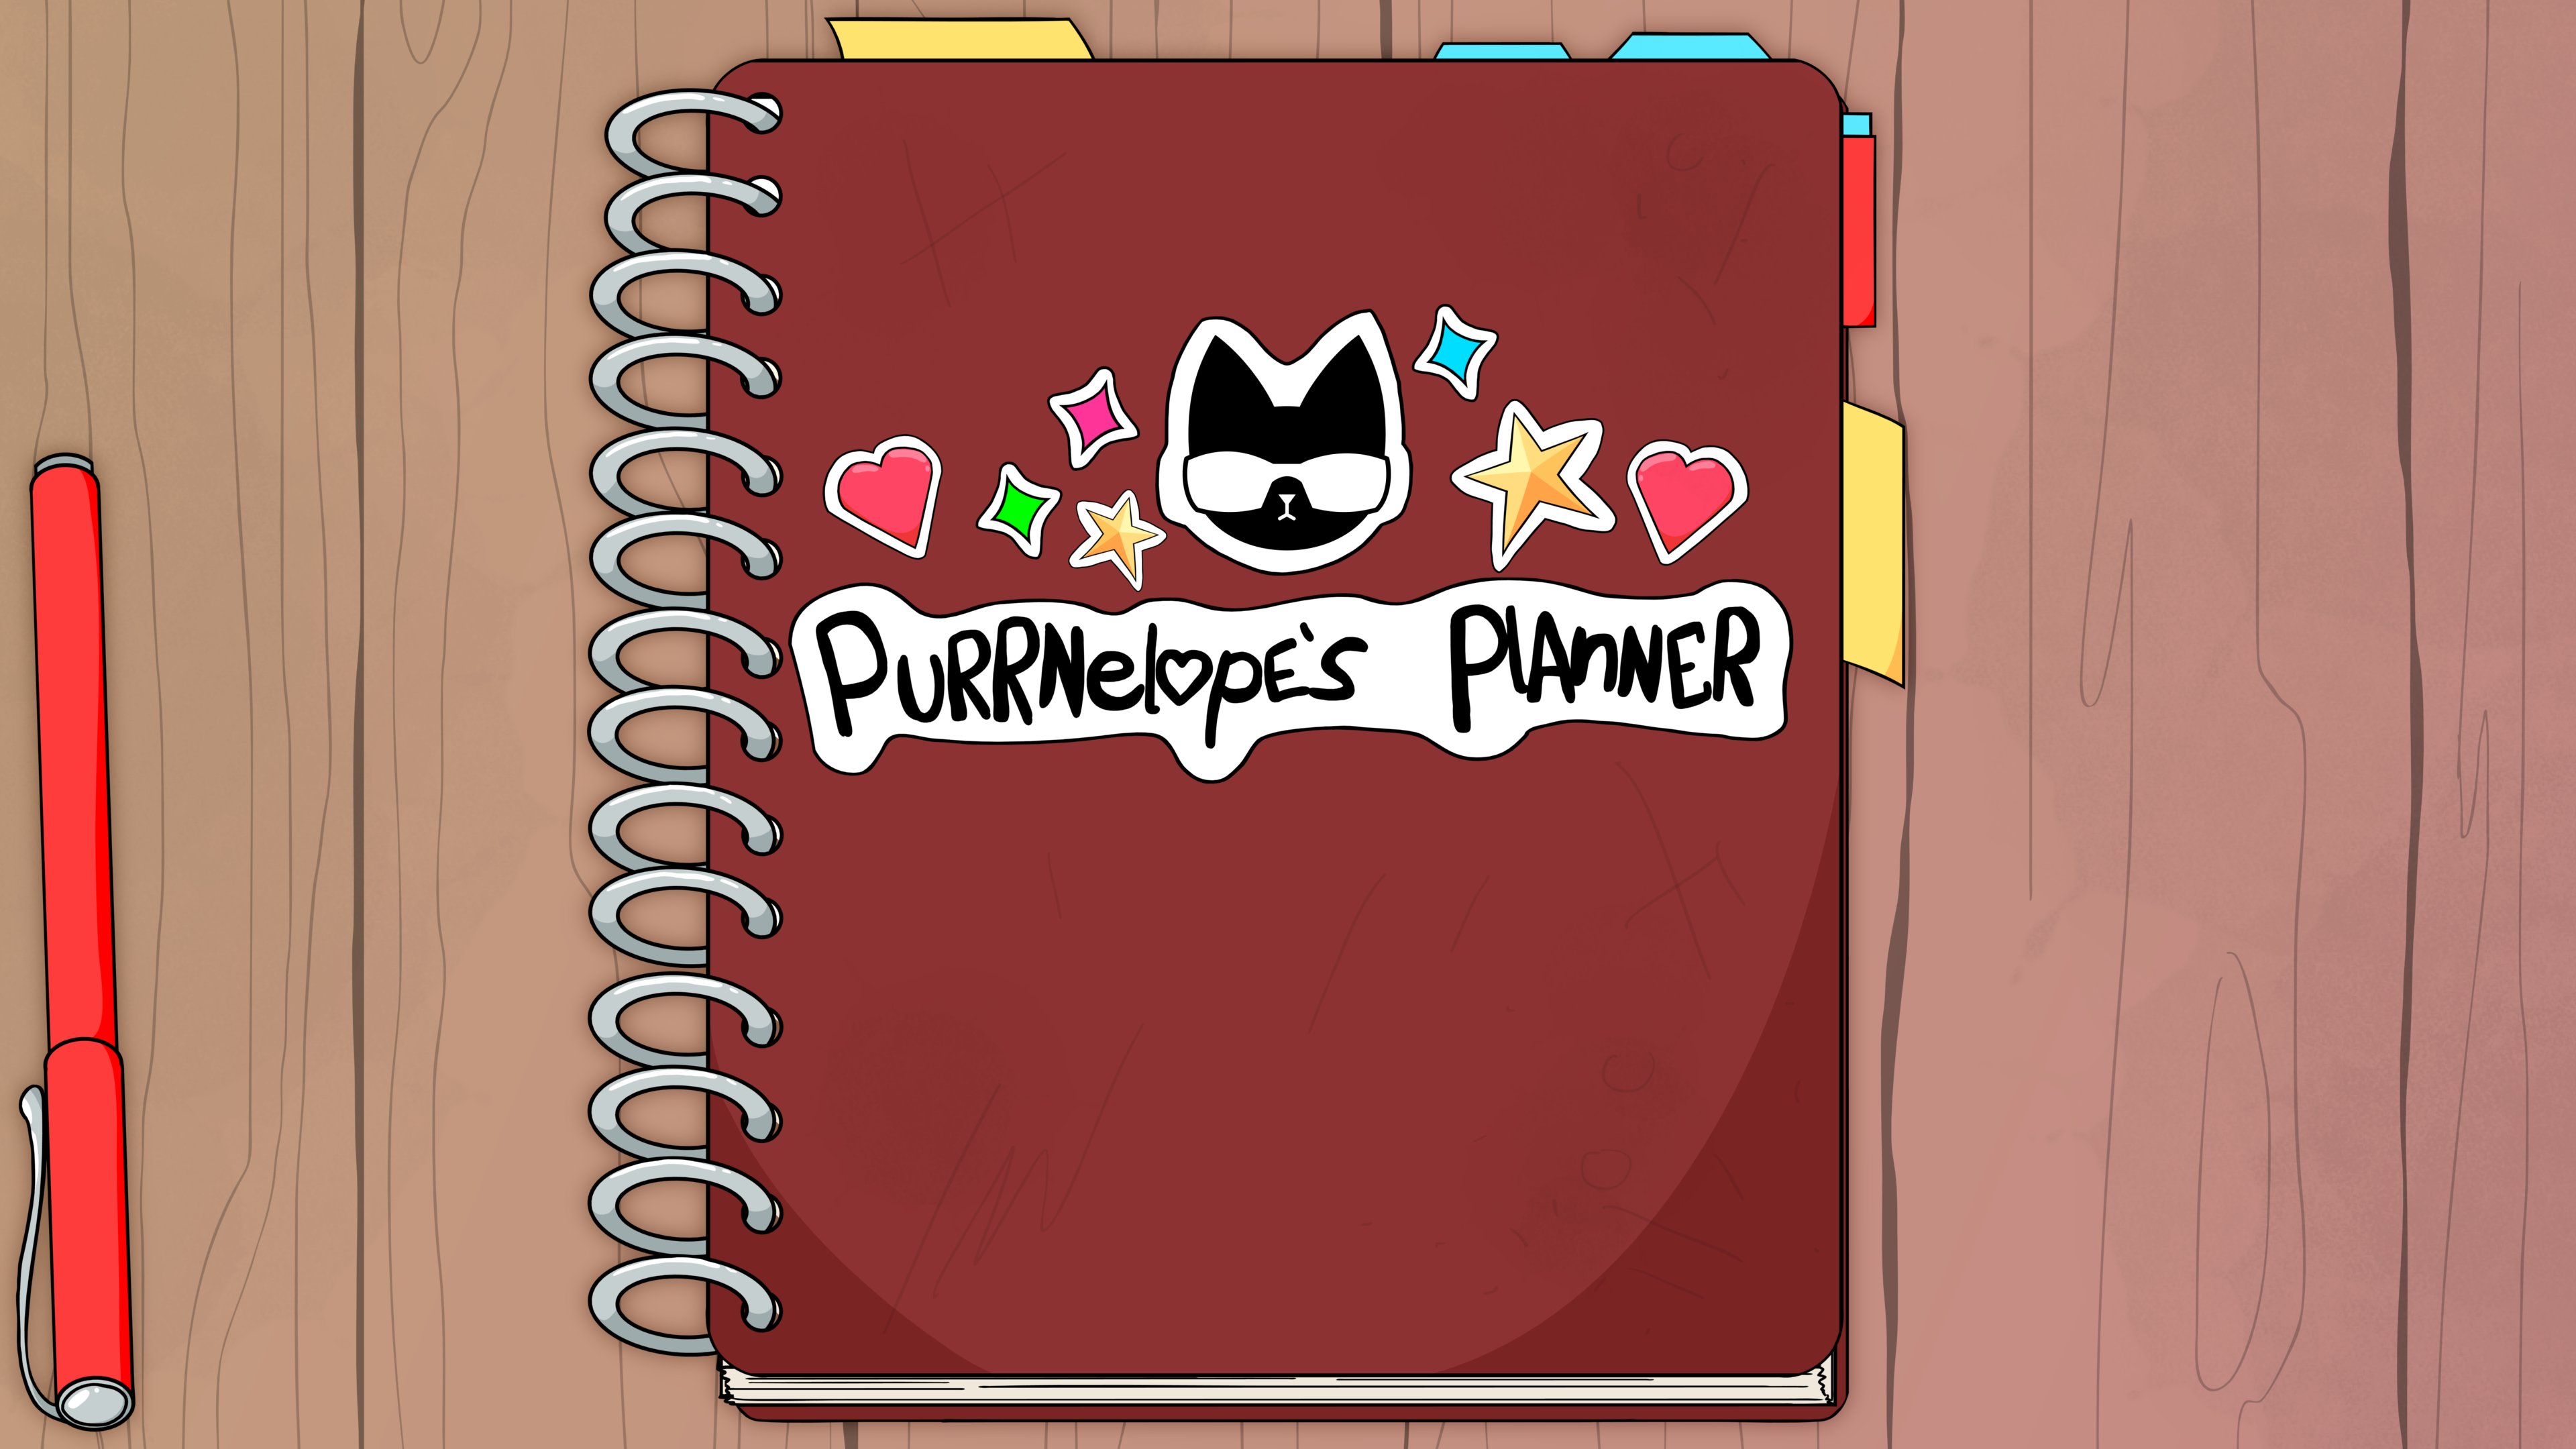 PURRNelope's PlAnNER